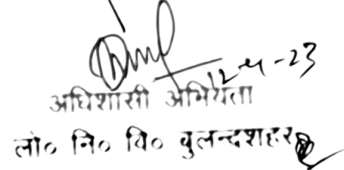 12-4-23
अधिशासी अभियंता
लो० नि० वि० बुलन्दशहर